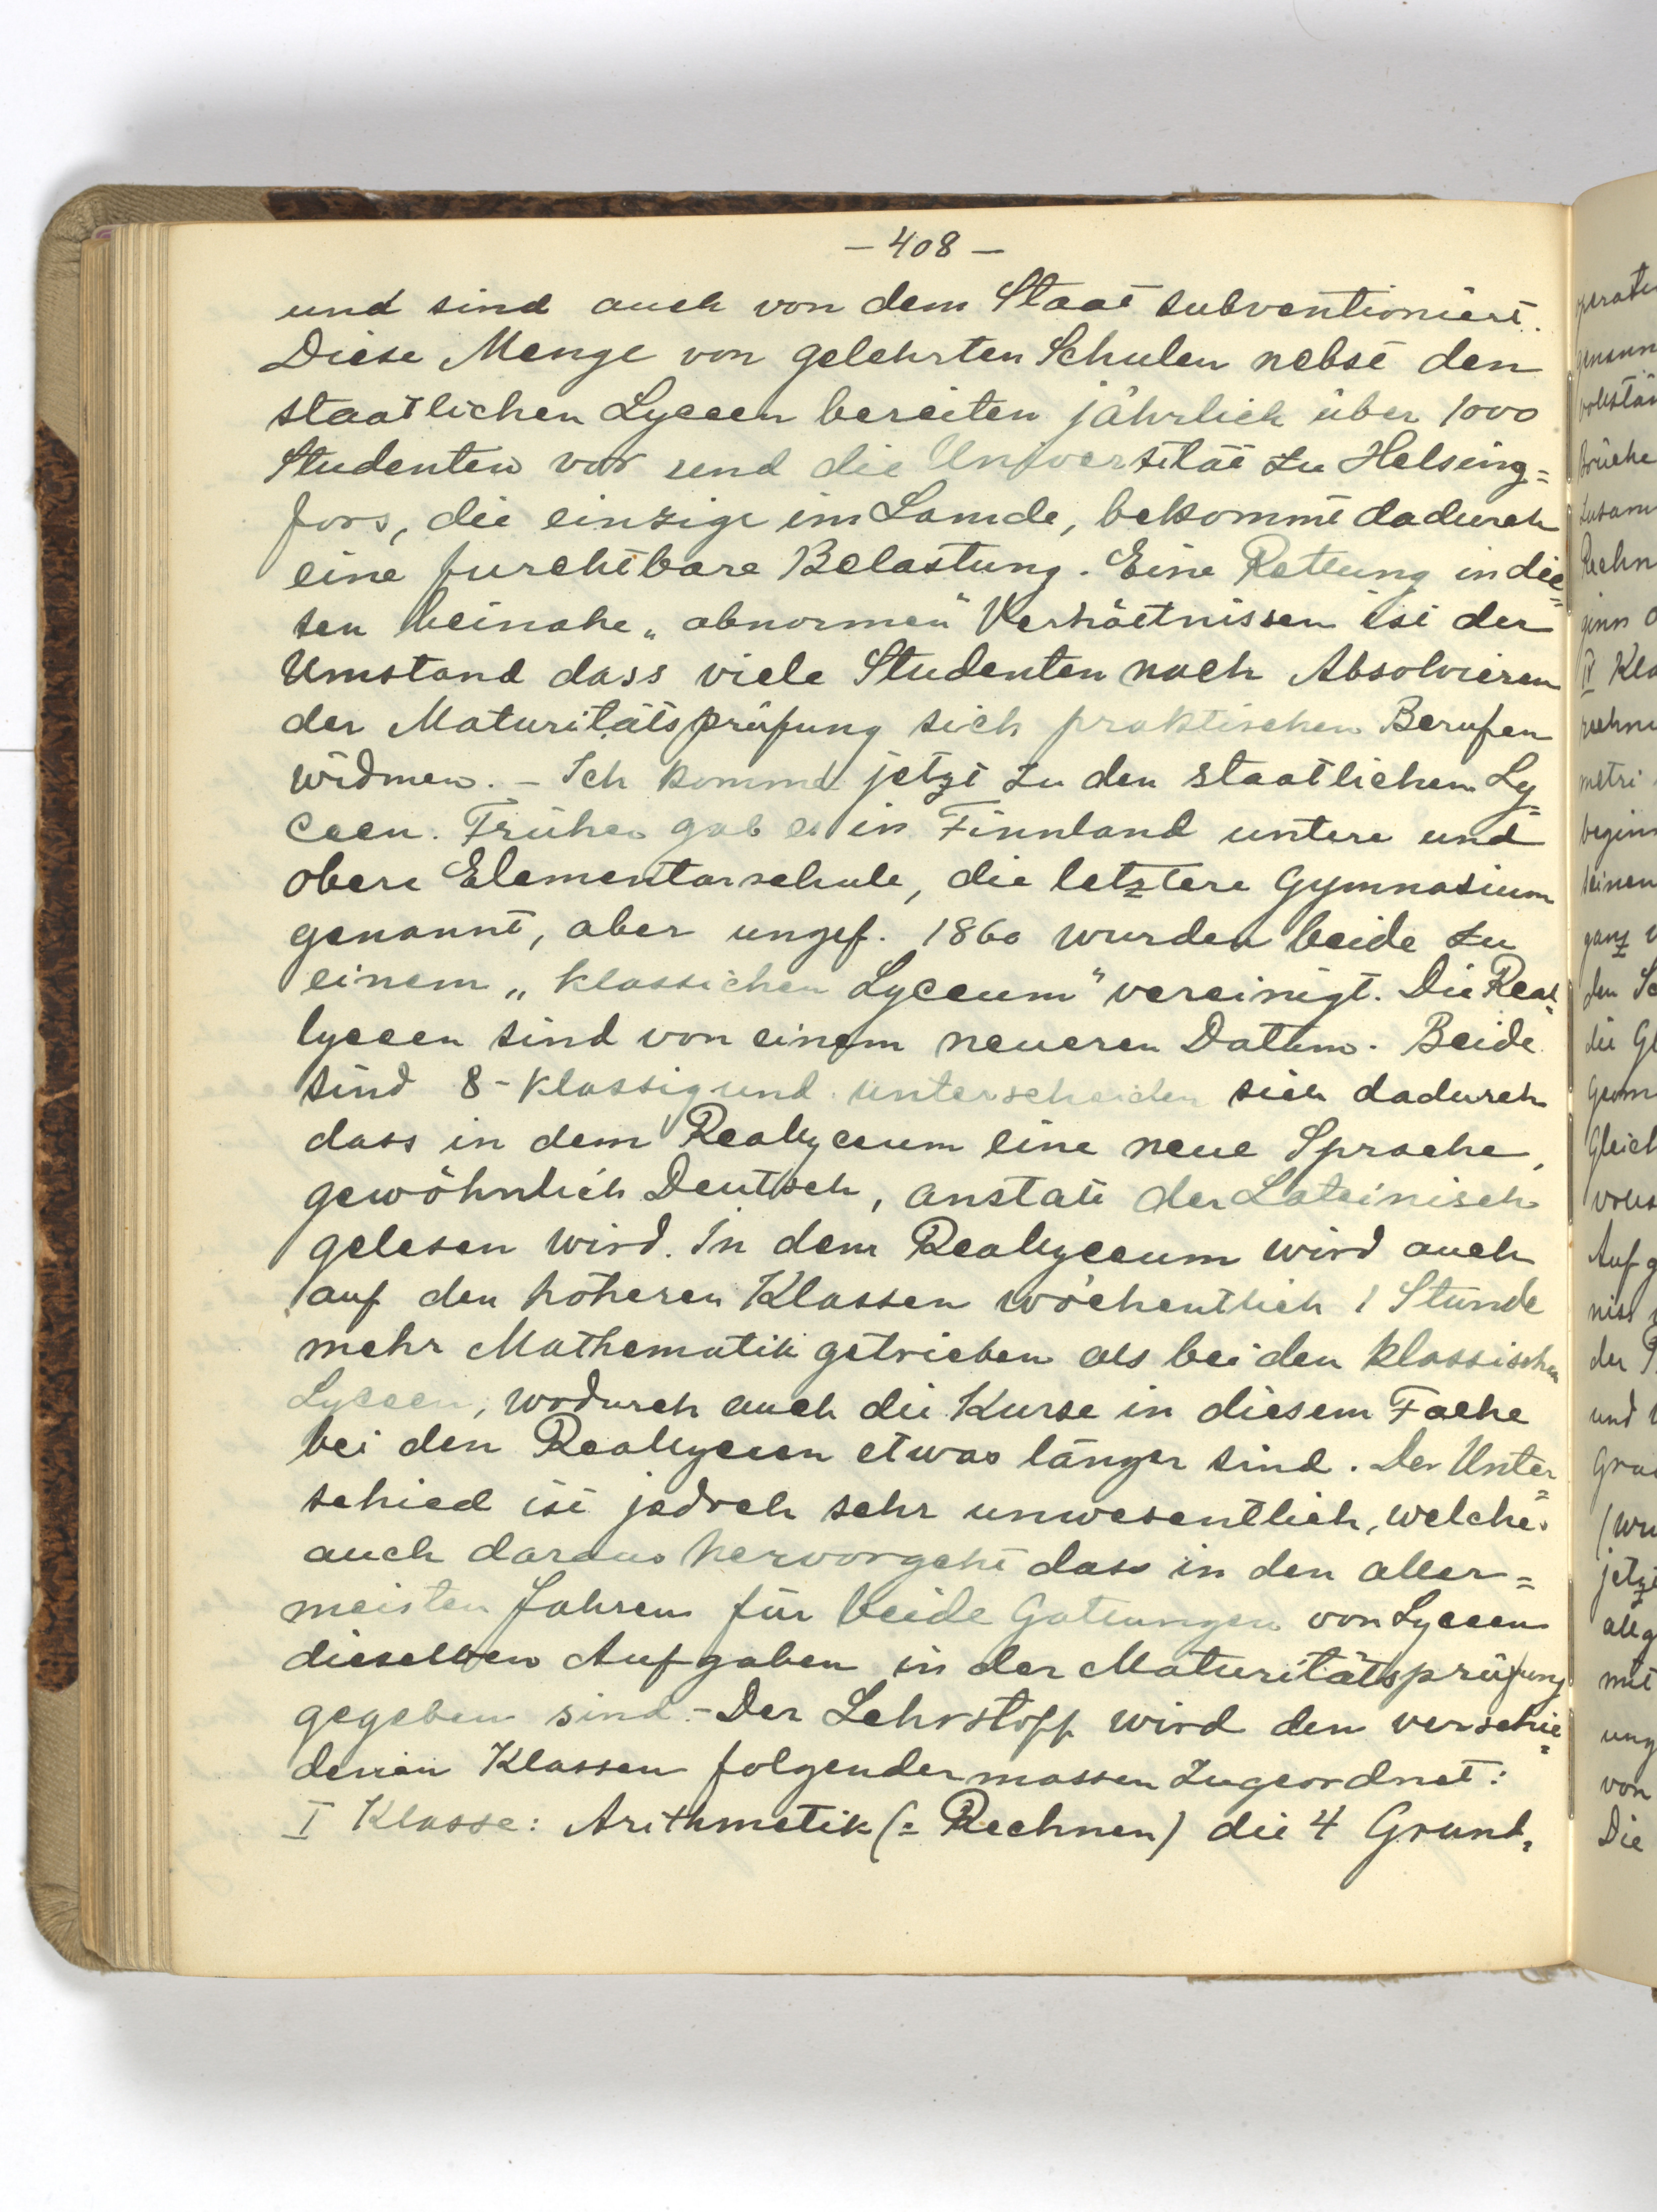 – 408 –
und sind auch von dem Staat subventioniert.
Diese Menge von gelehrten Schulen nebst den
staatlichen Lyceen bereiten jährlich über 1000
Studenten vor und die Universität zu Helsing=
fors, die einzige im Lande, bekommt dadurch
eine furchtbare Belastung. Eine Rettung in die=
sen beinahe „abnormen" Verhältnissen ist der
Umstand dass viele Studenten nach Absolvieren
der Maturitätsprüfung sich praktischen Berufen
widmen. – Ich komme jetzt zu den staatlichen Ly=
ceen. Früher gab es in Finnland untere und
obere Elementarschule, die letztere Gymnasium
genannt, aber ungef. 1860 wurden beide zu
einem „klassichen Lyceum" vereinigt. Die Real=
lyceen sind von einem neueren Datum. Beide
sind 8-klassig und unterscheiden sich dadurch
dass in dem Reallyceum eine neue Sprache,
gewöhnlich Deutsch, anstatt der Lateinisch
gelesen wird. In dem Reallyceum wird auch
auf den höheren Klassen wöchentlich 1 Stunde
mehr Mathematik getrieben als bei den klassischen
Lyceen, wodurch auch die Kurse in diesem Fache
bei den Reallyceen etwas länger sind. Der Unter=
schied ist jedoch sehr unwesentlich, welches
auch daraus hervorgeht dass in den aller=
meisten Jahren für beide Gattungen von Lyceen
dieselben Aufgaben in der Maturitätsprüfung
gegeben sind. – Der Lehrstoff wird den verschie=
denen Klassen folgendermassen zugeordnet:
I Klasse: Arithmetik (= Rechnen) die 4 Grund=